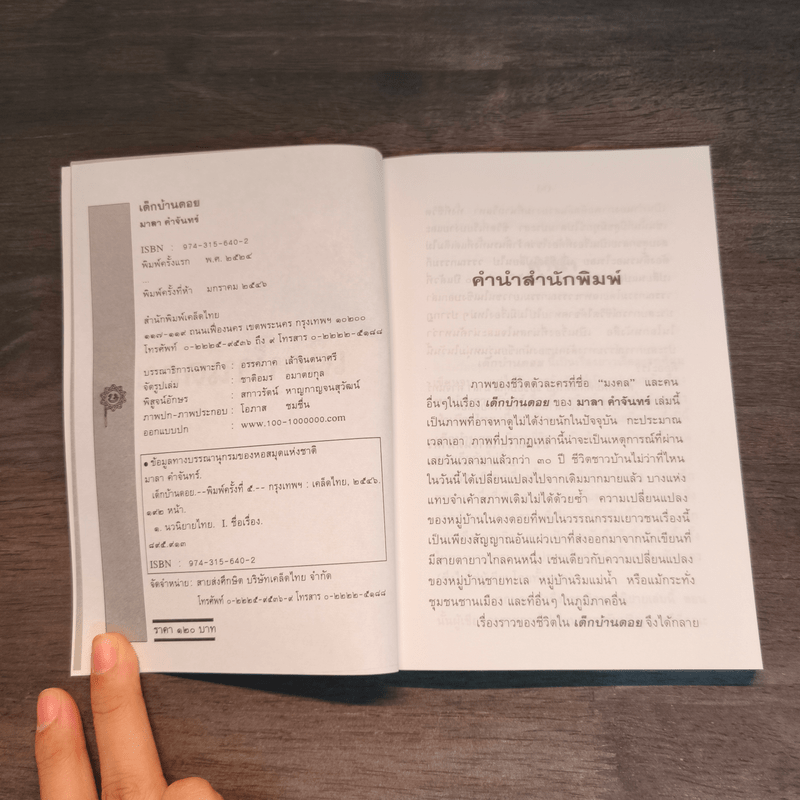 เด็กบ้านดอย
มาลา คำจันทร์
ISBN : 974-315-640-2
พิมพ์ครั้งแรก พ.ศ. ๒๕๒๔
...
พิมพ์ครั้งที่ห้า มกราคม ๒๕๔๖
สำนักพิมพ์เคล็ดไทย
๑๑๗-๑๑๙ ถนนเฟื่องนคร เขตพระนคร กรุงเทพฯ ๑๐๒๐๐
โทรศัพท์ ๐-๒๒๒๕-๙๕๓๖ ถึง ๙ โทรสาร ๐-๒๒๒๒-๕๑๘๘
บรรณาธิการเฉพาะกิจ : อรรคภาค เล้าจินตนาศรี
จัดรูปเล่ม : ชาติอมร อมาตยกุล
พิสูจน์อักษร : สกาวรัตน์ หาญกาญจนสุวัฒน์
ภาพปก-ภาพประกอบ : โอภาส ชมชื่น
ออกแบบปก : www.100-1000000.com
● ข้อมูลทางบรรณานุกรมของหอสมุดแห่งชาติ
มาลา คำจันทร์.
เด็กบ้านดอย.--พิมพ์ครั้งที่ ๕.-- กรุงเทพฯ : เคล็ดไทย, ๒๕๔๖.
๑๙๒ หน้า.
๑. นวนิยายไทย. I. ชื่อเรื่อง.
๘๙๕.๙๑๓
ISBN : 974-315-640-2
จัดจำหน่าย : สายส่งศึกษิต บริษัทเคล็ดไทย จำกัด
โทรศัพท์ ๐-๒๒๒๕-๙๕๓๖-๙ โทรสาร ๐-๒๒๒๒-๕๑๘๘
ราคา ๑๒๐ บาท
คำนำสำนักพิมพ์
ภาพของชีวิตตัวละครที่ชื่อ "มงคล" และคน
อื่นๆในเรื่อง เด็กบ้านดอย ของ มาลา คำจันทร์ เล่มนี้
เป็นภาพที่อาจหาดูไม่ได้ง่ายนักในปัจจุบัน กะประมาณ
เวลาเอา ภาพที่ปรากฏเหล่านี้น่าจะเป็นเหตุการณ์ที่ผ่าน
เลยวันเวลามาแล้วกว่า ๓๐ ปี ชีวิตชาวบ้านไม่ว่าที่ไหน
ในวันนี้ ได้เปลี่ยนแปลงไปจากเดิมมากมายแล้ว บางแห่ง
แทบจำเค้าสภาพเดิมไม่ได้ด้วยซ้ำ ความเปลี่ยนแปลง
ของหมู่บ้านในดงดอยที่พบในวรรณกรรมเยาวชนเรื่องนี้
เป็นเพียงสัญญาณอันแผ่วเบาที่ส่งออกมาจากนักเขียนที่
มีสายตายาวไกลคนหนึ่ง เช่นเดียวกับความเปลี่ยนแปลง
ของหมู่บ้านชายทะเล หมู่บ้านริมแม่น้ำ หรือแม้กระทั่ง
ชุมชนชานเมือง และที่อื่นๆ ในภูมิภาคอื่น
เรื่องราวของชีวิตใน เด็กบ้านดอย จึงได้กลาย